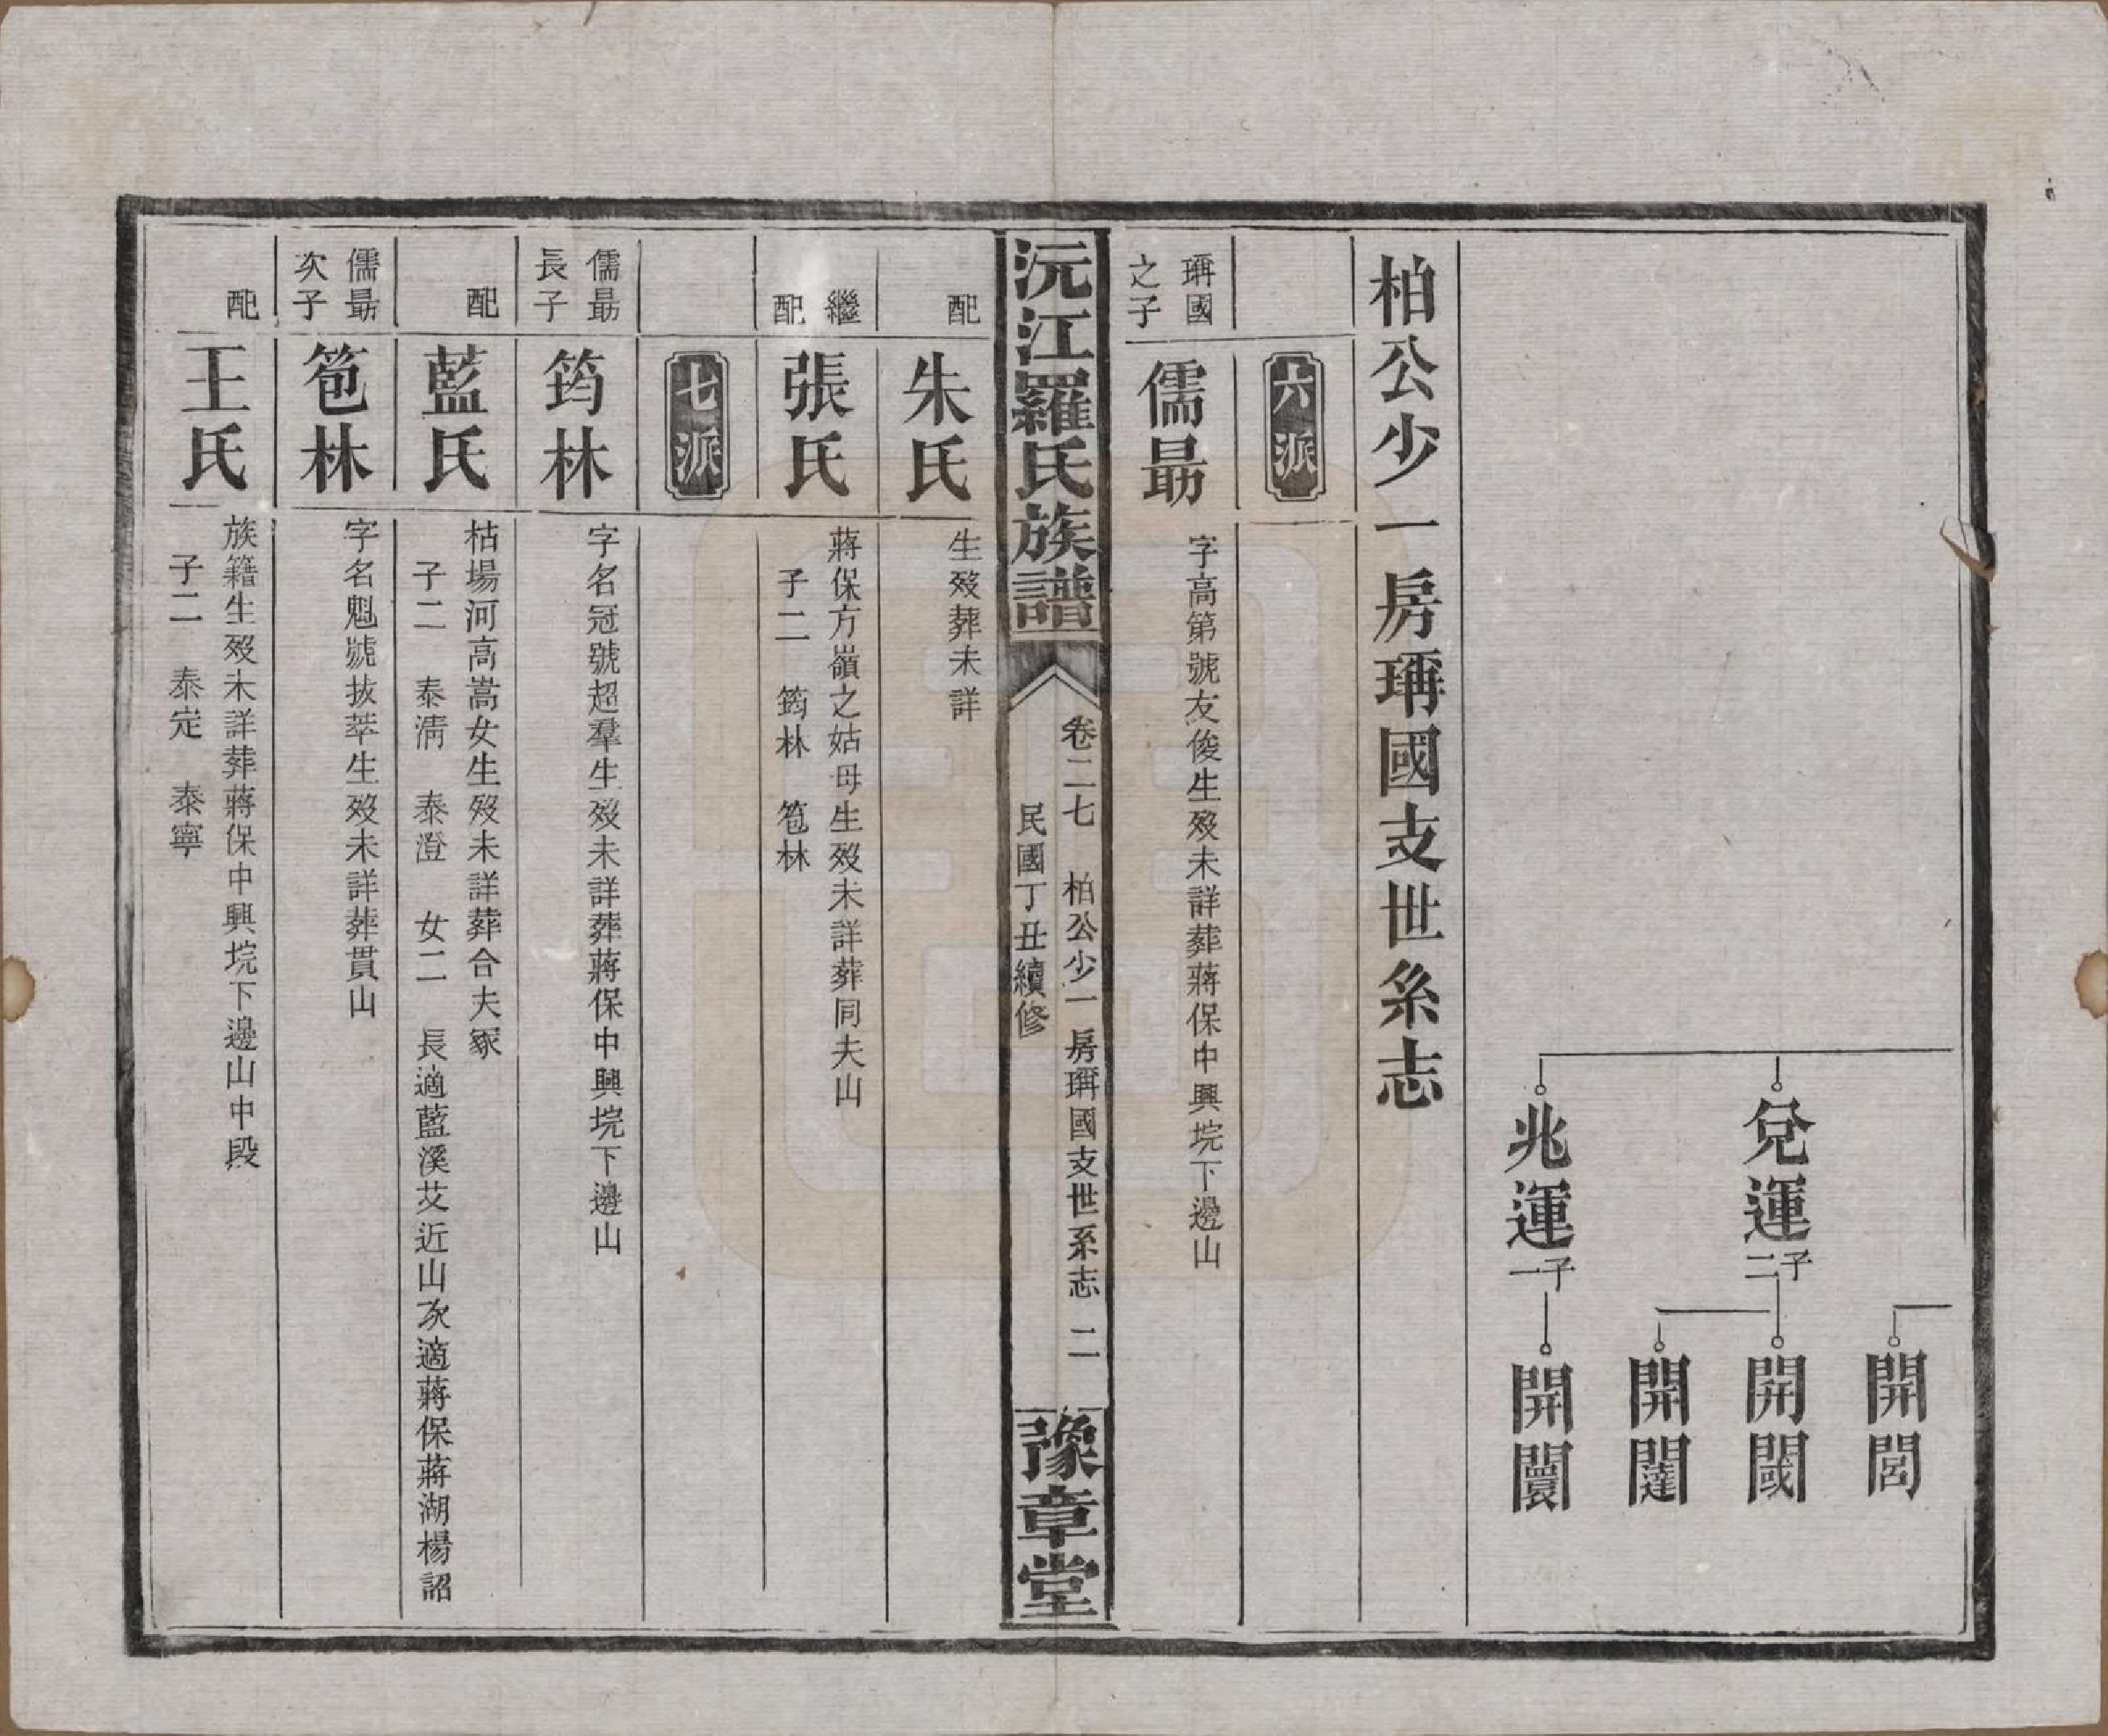 開閭
兌運 子二
開閾
開闥
兆運 子一
開闤
柏公少一房瑀國支世系志
六派
瑀國之子
儒勗
字高第號友俊生歿未詳葬蔣保中興垸下邊山
沅江羅氏族譜
卷二七 柏公少一房瑀國支世系志 二
民國丁丑續修
豫章堂
配
朱氏
生歿葬未詳
繼配
張氏
蔣保方嶺之姑母生歿未詳葬同夫山
子二 筠林 笣林
七派
儒勗長子
筠林
字名冠號超羣生歿未詳葬蔣保中興垸下邊山
配
藍氏
枯場河高嵩女生歿未詳葬合夫冢
子二 泰淸 泰澄 女二 長適藍溪艾近山次適蔣保蔣湖楊詔
儒勗次子
笣林
字名魁號拔萃生歿未詳葬貫山
配
王氏
族籍生歿未詳葬蔣保中興垸下邊山中段
子二 泰定 泰寧